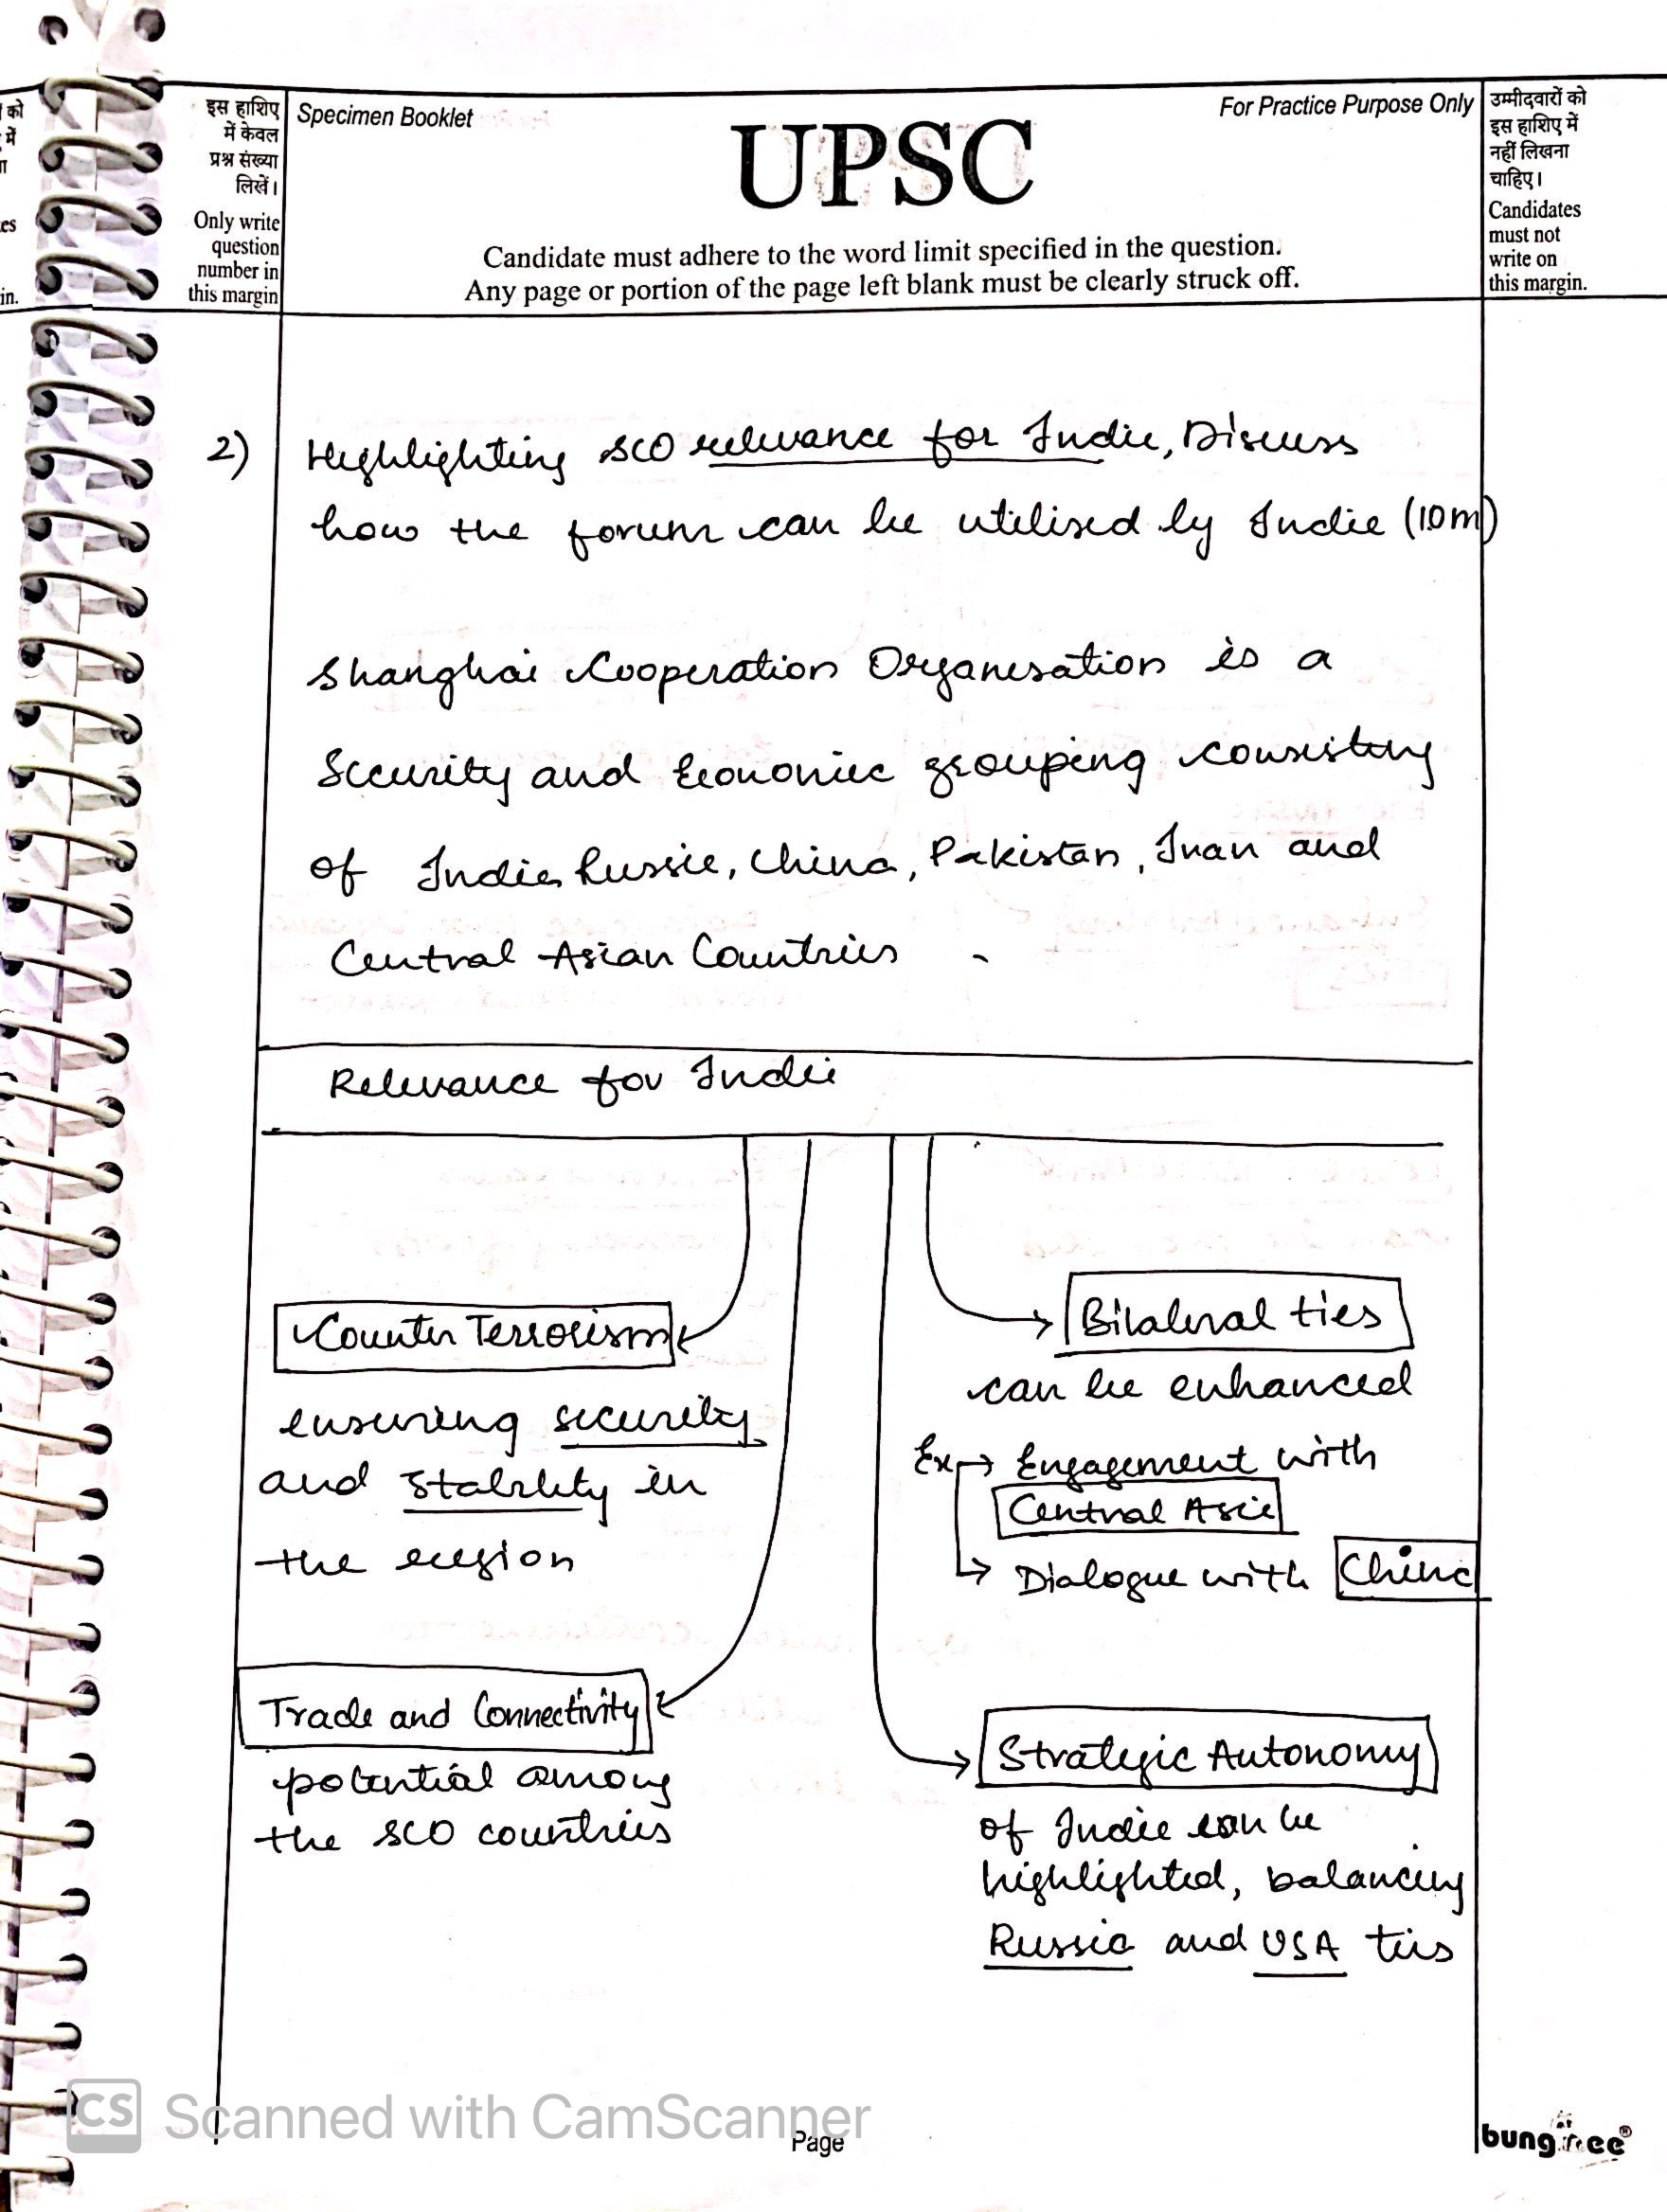 को
में
इस हाशिए
में केवल
प्रश्न संख्या
लिखें।
Only write
question
number in
this margin
es
in.
Specimen Booklet
For Practice Purpose Only
UPSC
Candidate must adhere to the word limit specified in the question.
Any page or portion of the page left blank must be clearly struck off.
उम्मीदवारों को
इस हाशिए में
नहीं लिखना
चाहिए।
Candidates
must not
write on
this margin.
2) Highlighting SCO relevance for India, Discuss
how the forum can be utilised by India (10m)
Shanghai Cooperation Organisation is a
Security and Economic grouping consisting
of India, Russia, China, Pakistan, Iran and
Central Asian Countries .
Relevance for India
Counter Terrorism
ensuring security
and stability in
the region
Trade and Connectivity
potential among
the SCO countries
Bilateral ties
can be enhanced
Ex → Engagement with
Central Asia
→ Dialogue with China
Strategic Autonomy
of India can be
highlighted, balancing
Russia and USA ties
CS Scanned with CamScanner
Page
bungree